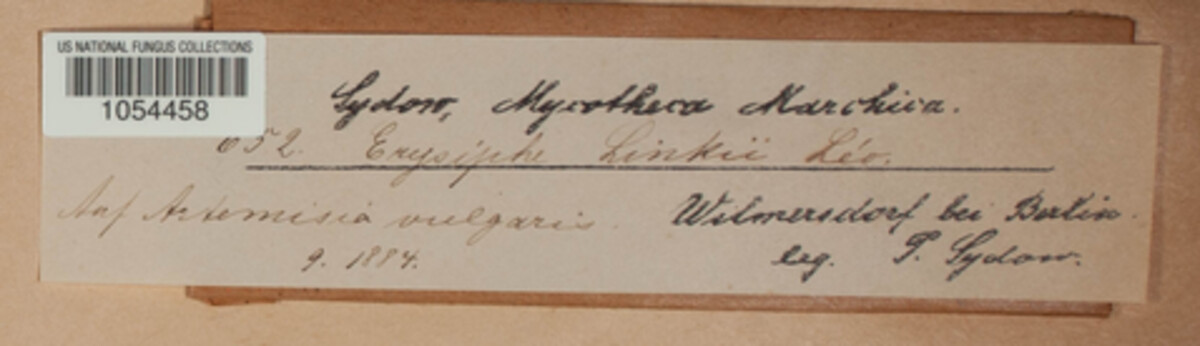 US NATIONAL FUNGUS COLLECTIONS
1054458
Sydow, Mycotheca Marchica.
652. Erysiphe Linkii Lév.
Auf Artemisia vulgaris.
9. 1884.
Wilmersdorf bei Berlin.
leg. P. Sydow.